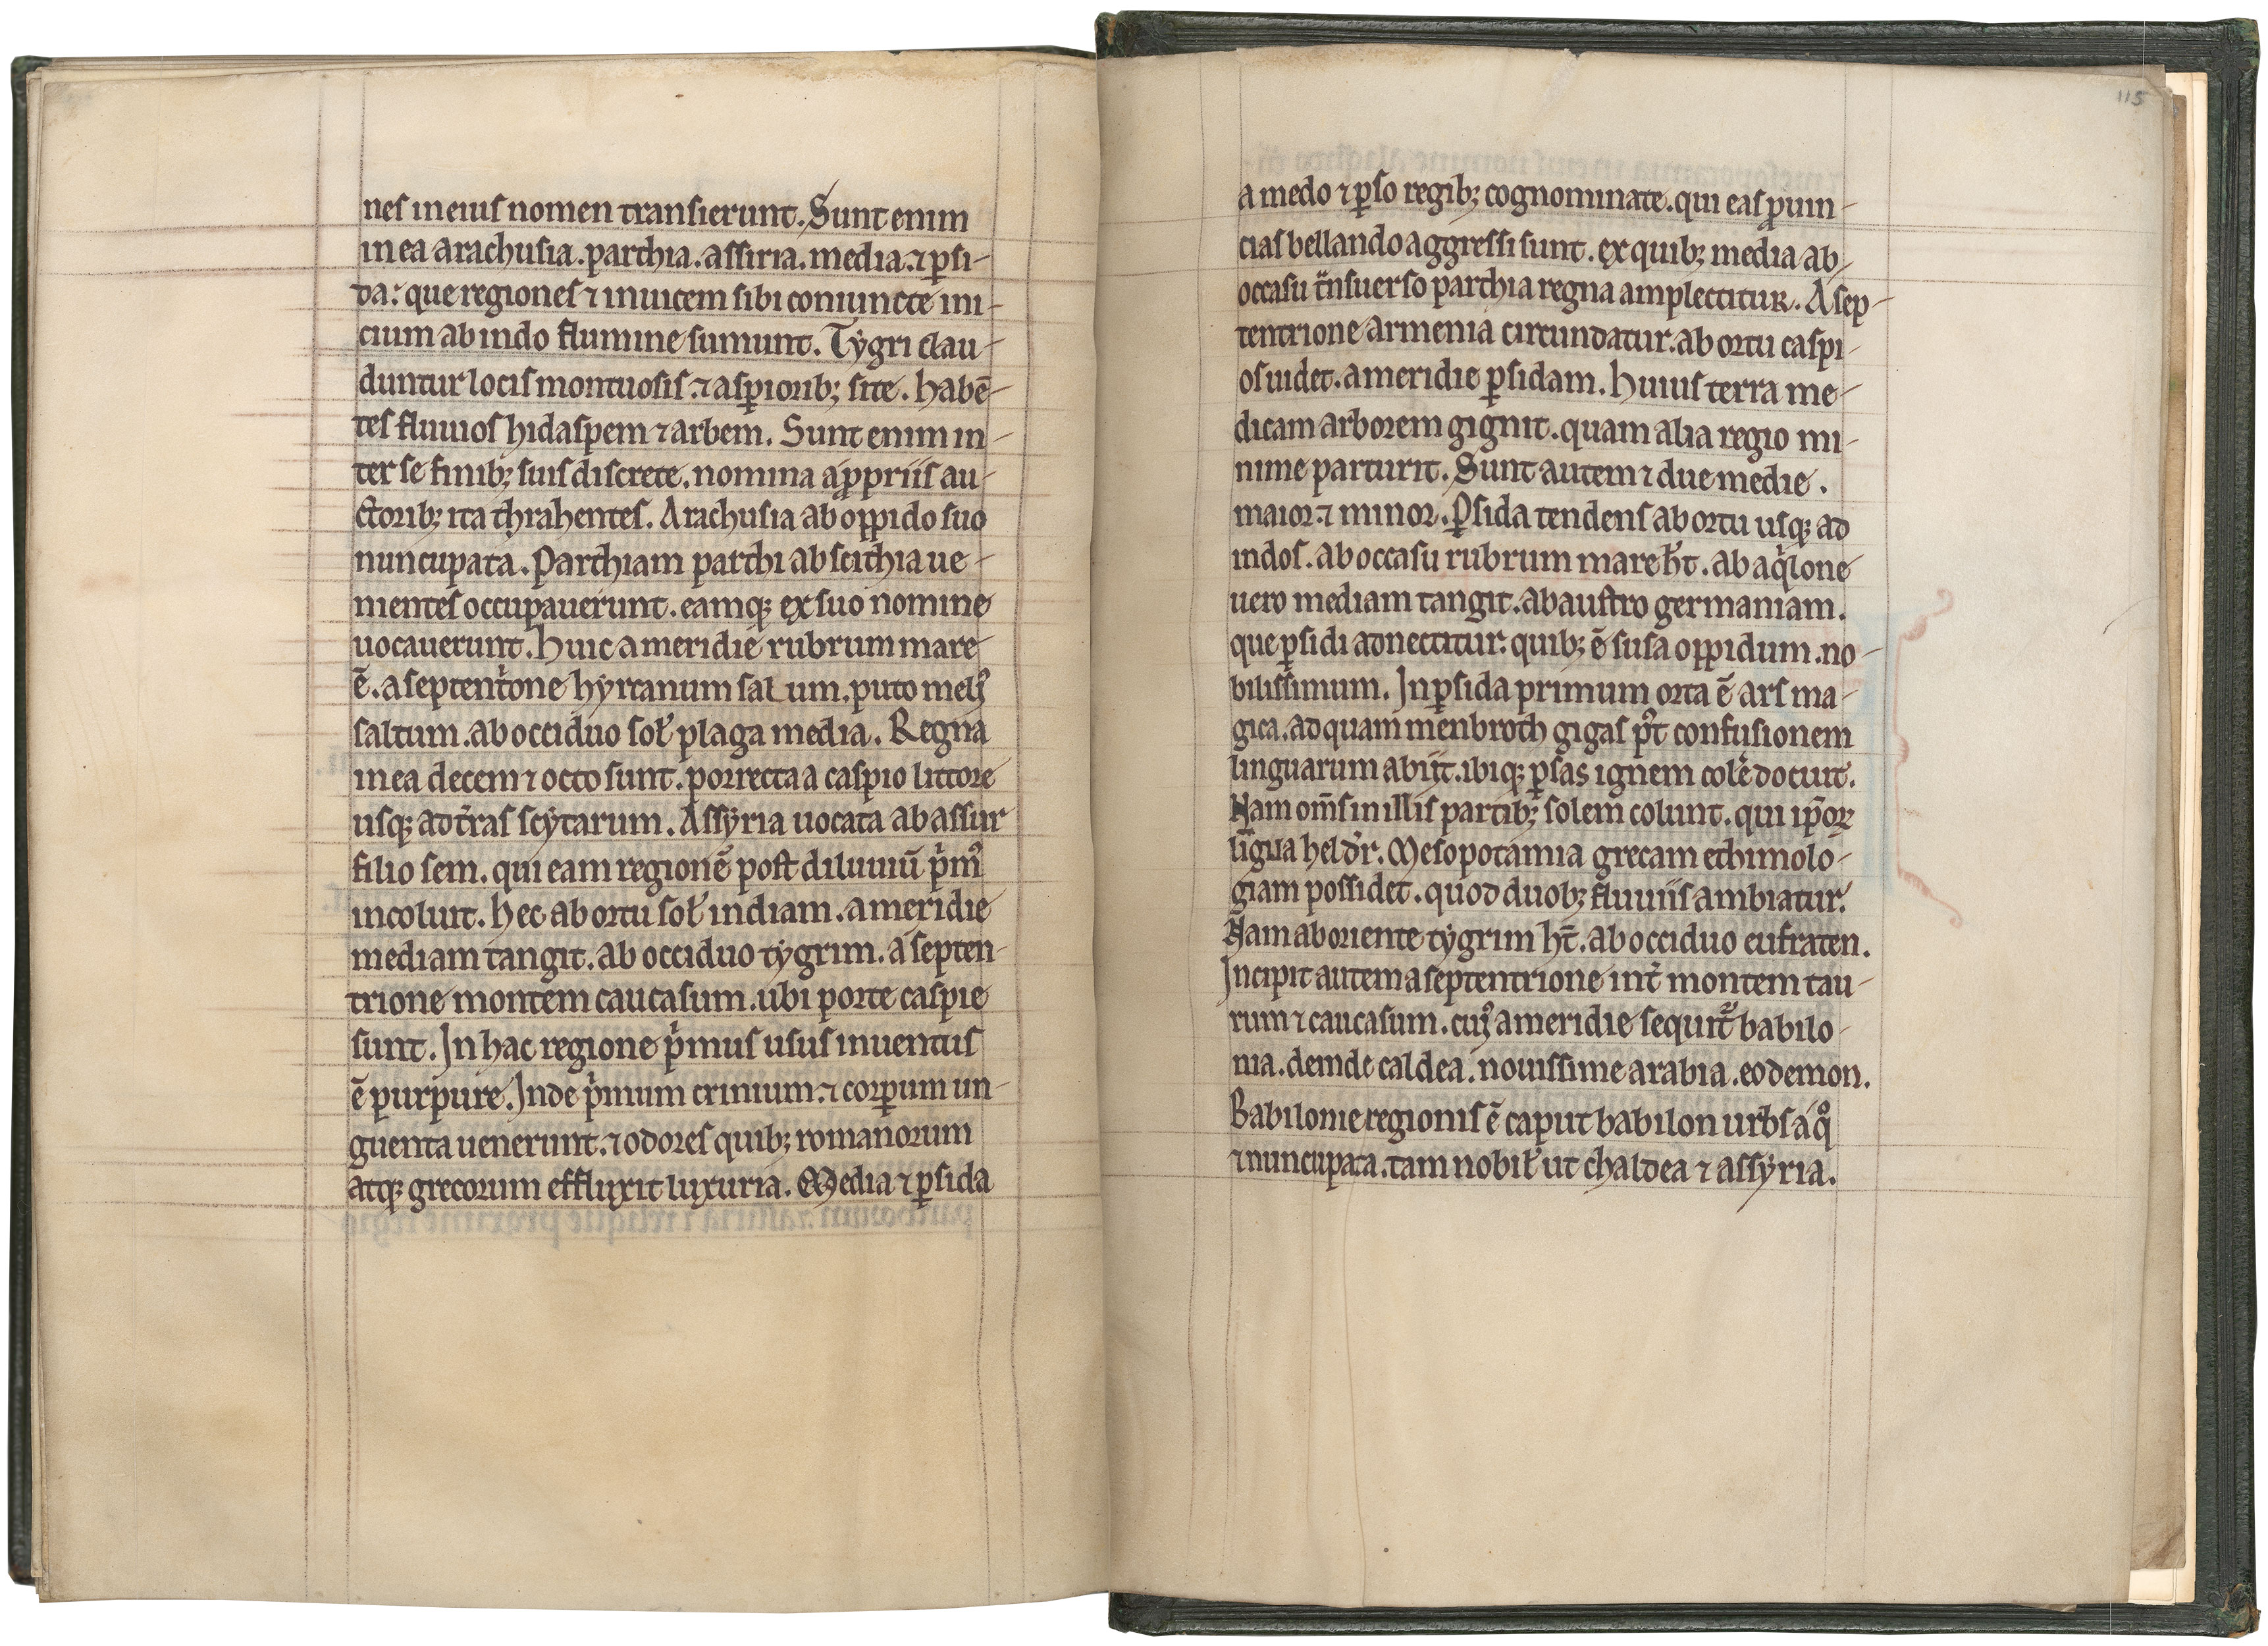 nes in eius nomen transierunt. Sunt enim
in ea arachusia. parthia. assiria. media. ⁊ ꝑsi-
da: que regiones ⁊ inuicem sibi coniuncte ini-
cium ab indo flumine sumunt. Tygri clau-
duntur locis montuosis. ⁊ asꝑiorib; site. habē-
tes fluuios hidaspem ⁊ arbem. Sunt enim in-
ter se finib; suis discrete. nomina a ꝓpriis au-
ctorib; ita thrahentes. Arachusia ab oppido suo
nuncupata. Parthiam parthi ab scithia ue-
nientes occupauerunt. eamq; ex suo nomine
uocauerunt. Huic a meridie rubrum mare
ē. a septentͥone hyrcanum salum. puto melꝰ
saltum. ab occiduo sol̕ plaga media. Regna
in ea decem ⁊ octo sunt. porrecta a caspio littore
usq; ad t̕ras scytarum. Assyria uocata ab assur
filio sem. qui eam regionē post diluuiū pͥmꝰ
incoluit. Hec ab ortu sol̕ indiam. a meridie
mediam tangit. ab occiduo tygrim. a septen-
trione montem caucasum. ubi porte caspie
sunt. In hac regione pͥmus usus inuentus
ē purpure. Inde pͥmum crinium. ⁊ corꝑum un-
guenta uenerunt. ⁊ odores quib; romanorum
atq; grecorum effluxit luxuria. Media ⁊ ꝑsida
115
a medo ⁊ ꝑso regib; cognominate. qui eas ꝓuin-
cias bellando aggressi sunt. ex quib; media ab
occasu t̃nsuerso parthia regna amplectitur. A sep-
tentrione armenia circundatur. ab ortu caspi-
os uidet. a meridie ꝑsidam. Huius terra me-
dicam arborem gignit. quam alia regio mi-
nime parturit. Sunt autem ⁊ due medie.
maior. ⁊ minor. Ꝑsida tendens ab ortu usq; ad
indos. ab occasu rubrum mare h̕t. ab aqͥlone
uero mediam tangit. ab austro germaniam.
que ꝑsidi adnectitur. quib; ē susa oppidum. no-
bilissimum. In ꝑsida primum orta ē ars ma-
gica. ad quam menbroth gigas pꝰt confusionem
linguarum abiit. ibiq; ꝑsas ignem col̕e docuit.
Nam om̄s in illis partib; solem colunt. qui ip̄oꝝ
līgua hel dr̕. Mesopotamia grecam ethimolo-
giam possidet. quod duob; fluuiis ambiatur.
Nam ab oriente tygrim h̄t. ab occiduo eufraten.
Incipit autem a septentrione int̕ montem tau-
rum ⁊ caucasum. cuiꝰ a meridie sequit᷑ babilo-
nia. deinde caldea. nouissime arabia. eodemon.
Babilonie regionis ē caput babilon urbs a qͦ
⁊ nuncupata. tam nobil̕ ut chaldea ⁊ assyria.